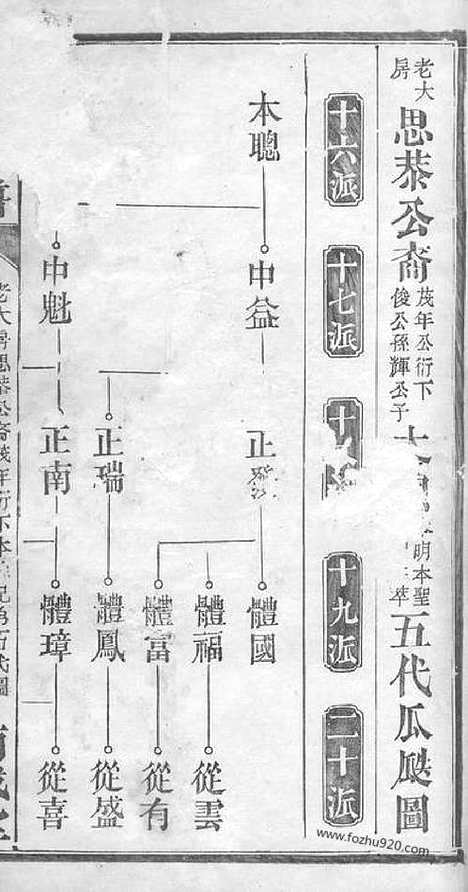 老大房思恭公裔茂年公衍下俊公孫輝公子
明本聖
五代瓜瓞圖
十六派
十七派
十
十九派
二十派
本聰
中益
正
體國
體福
從雲
體富
從有
正瑞
體鳳
從盛
中魁
正南
體璋
從喜
老大房思恭公裔茂年衍下本
五代圖
www.fozhu920.com